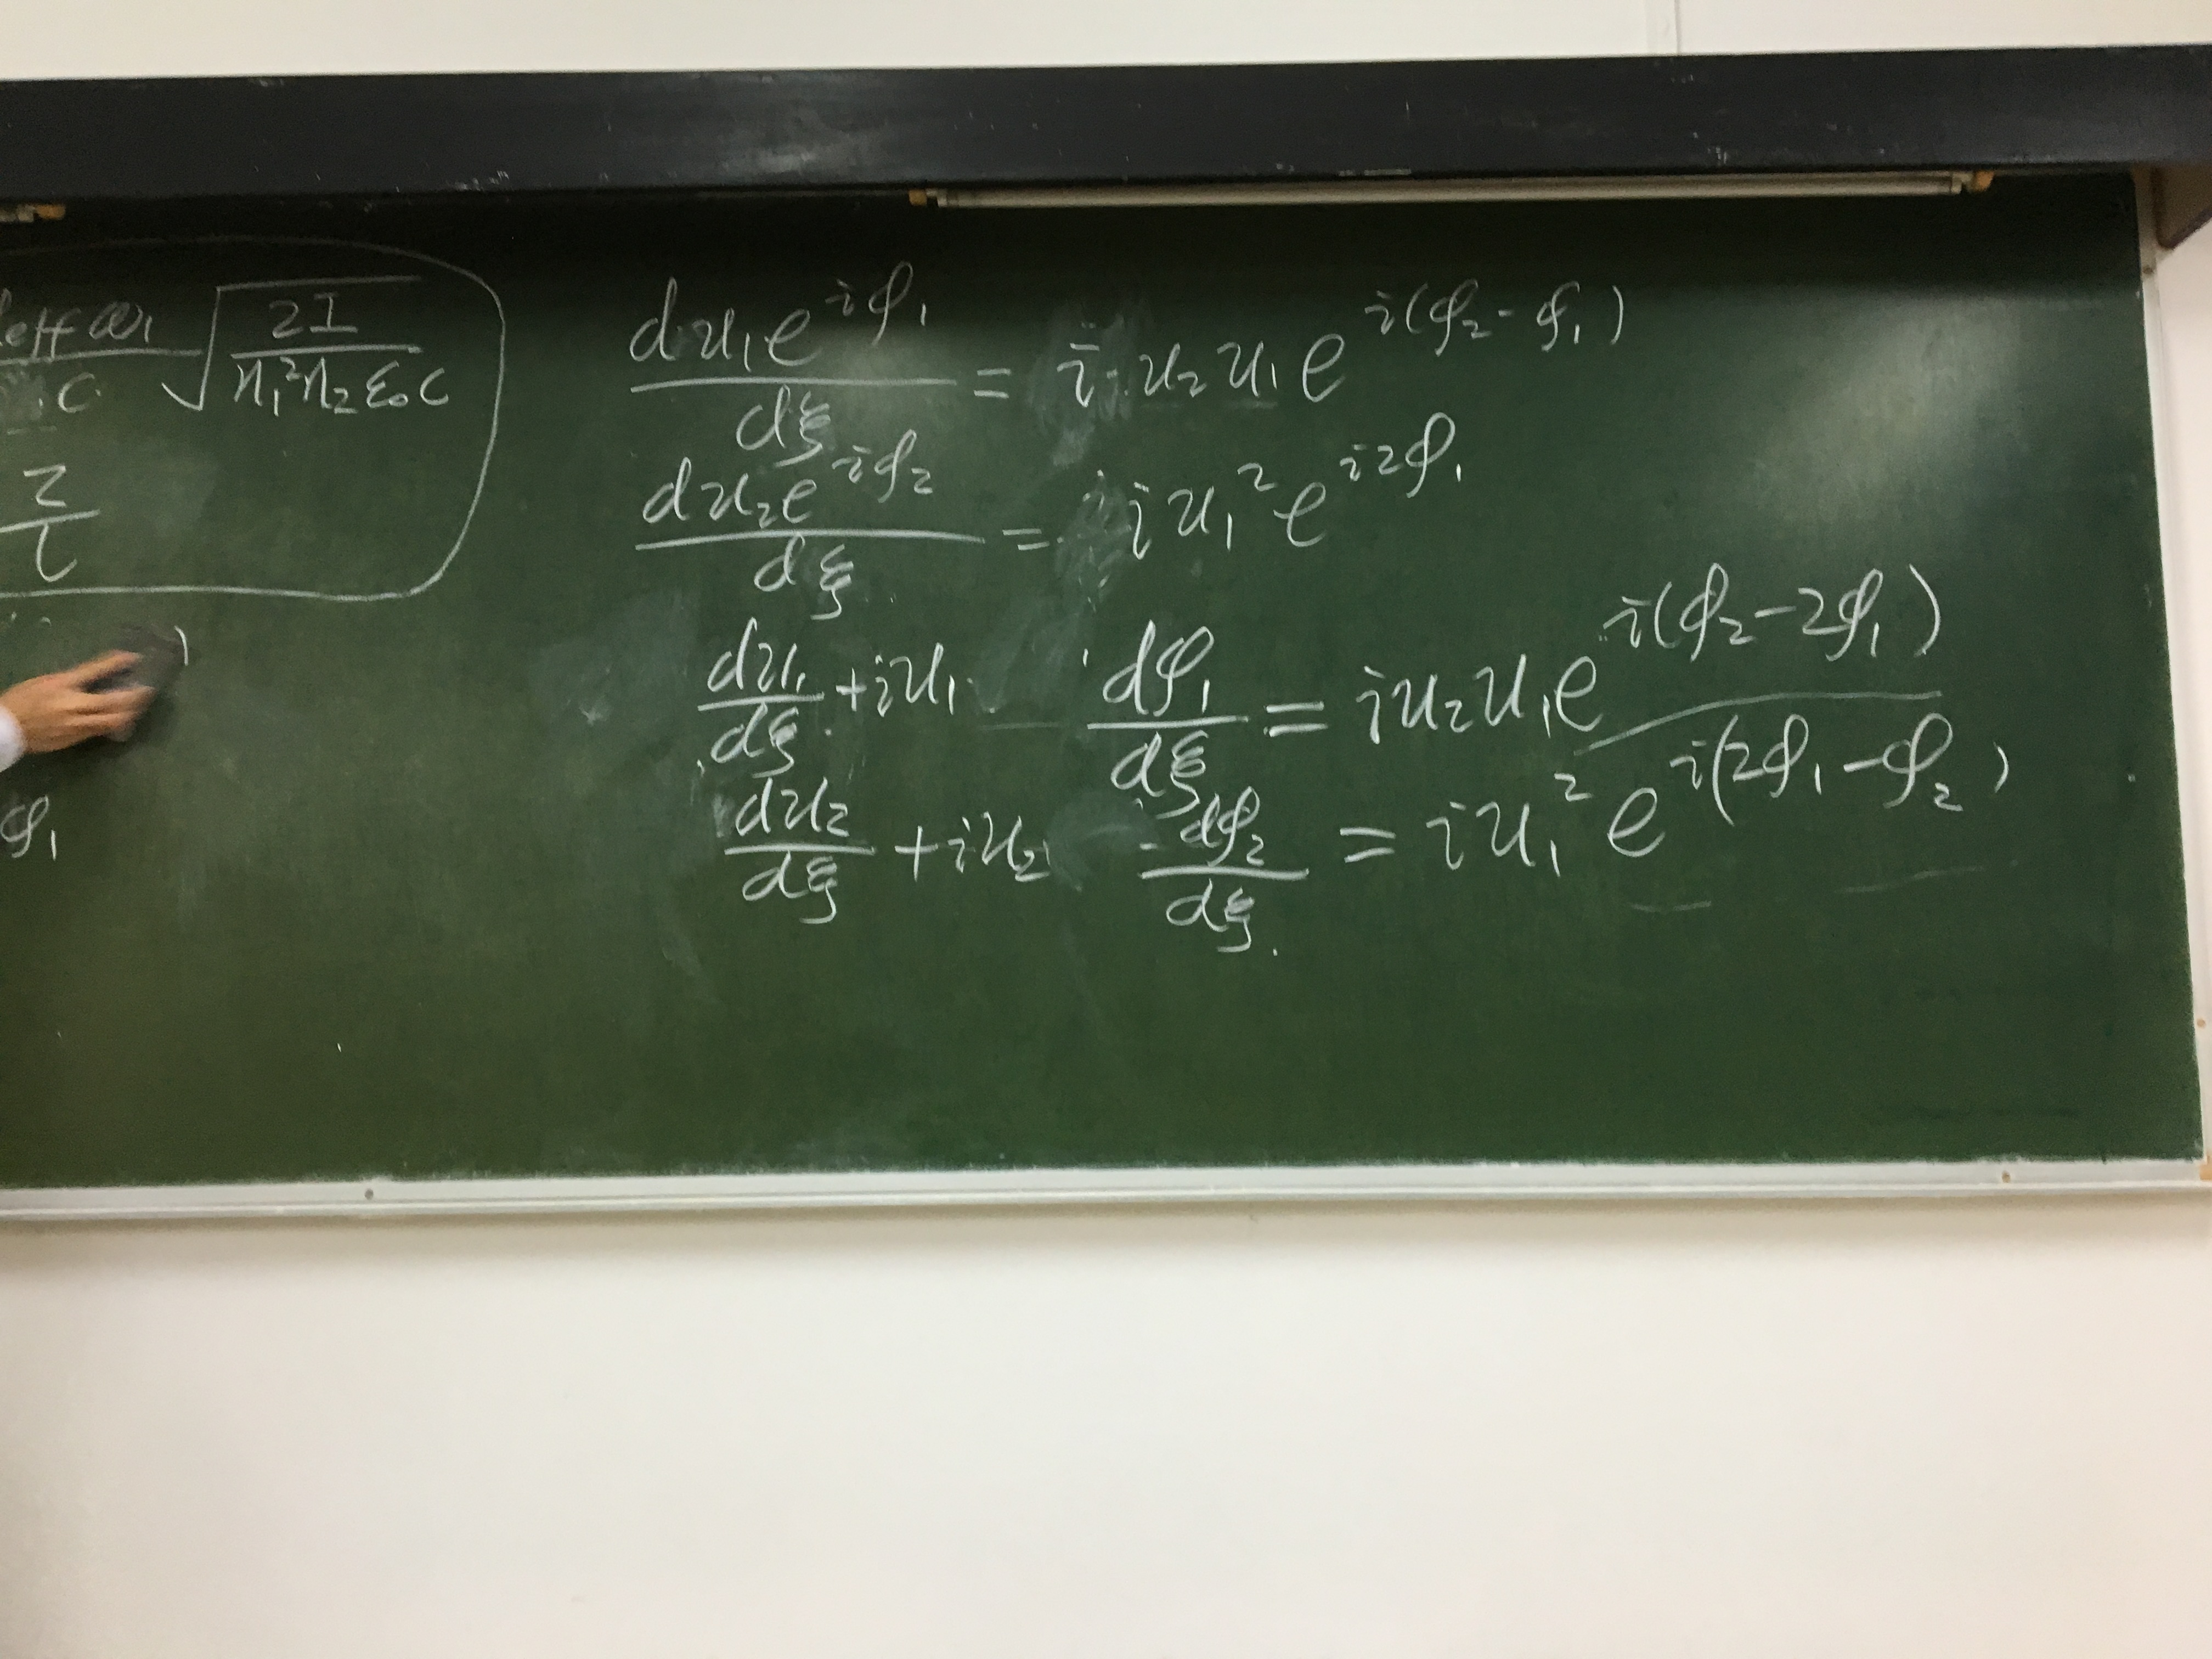 eff ω₁ / c √(2I / n₁²n₂ε₀c)
z / l
φ₁
du₁e^{iφ₁} / dξ = i u₂u₁e^{i(φ₂-φ₁)}
du₂e^{iφ₂} / dξ = iu₁²e^{i2φ₁}
du₁/dξ + iu₁ dφ₁/dξ = iu₂u₁e^{i(φ₂-2φ₁)}
du₂/dξ + iu₂ dφ₂/dξ = iu₁²e^{i(2φ₁-φ₂)}